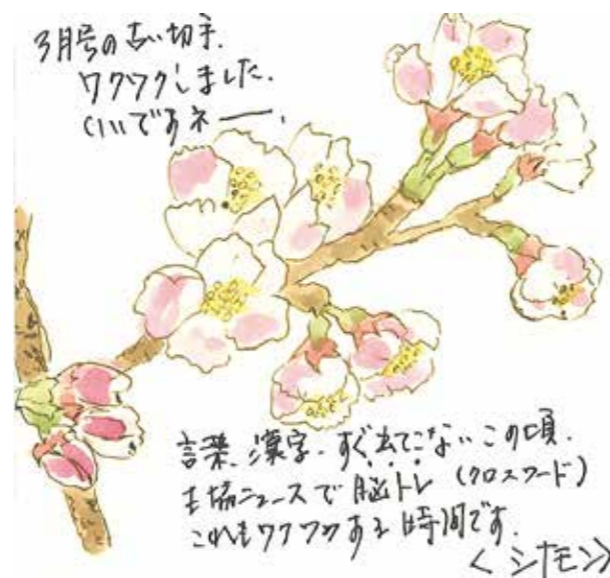 3月号の古い切手.
ワクワクしました.
いいですネー.
言葉、漢字、すぐ出てこないこの頃.
生協ニュースで脳トレ (クロスワード)
これもワクワクする時間です.
<シナモン>